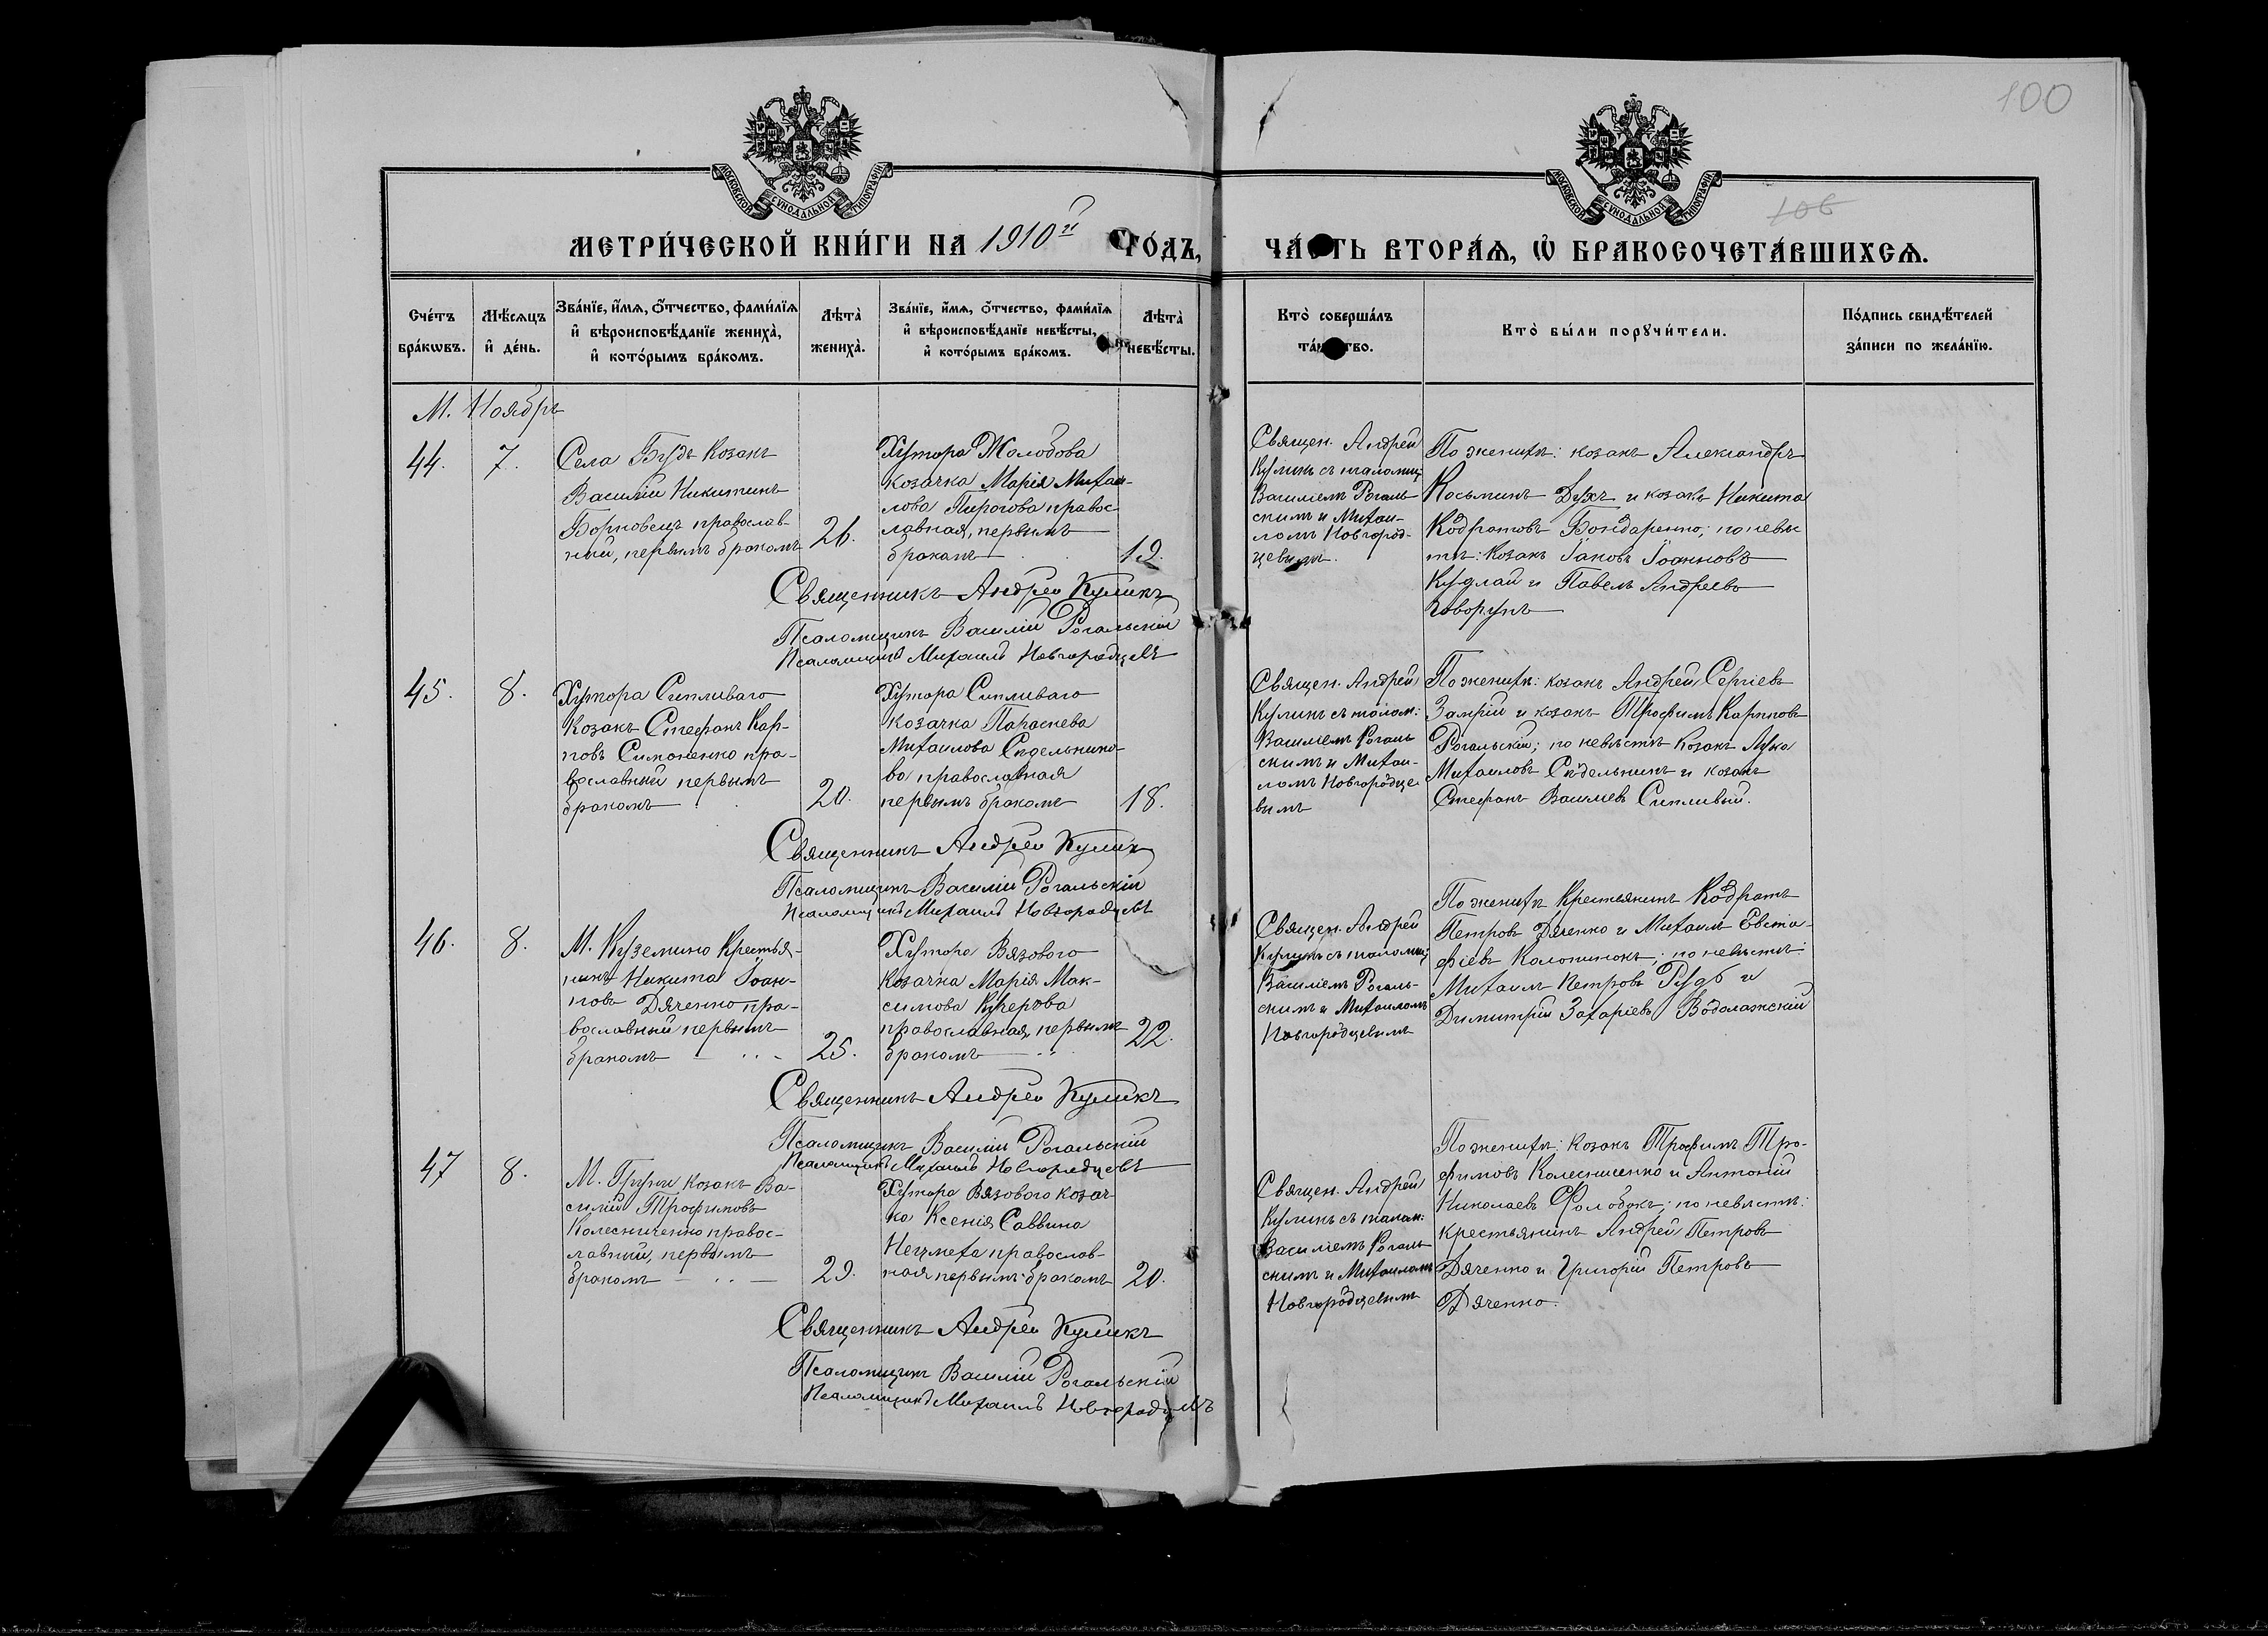 100
106
МОСКОВСКОЙ СУНОДАЛЬНОЙ ТИПОГРАФІИ
МОСКОВСКОЙ СУНОДАЛЬНОЙ ТИПОГРАФІИ
МЕТРИ́ЧЕСКОЙ КНИ́ГИ НА 1910й ГО́ДЪ,
ЧА́СТЬ ВТОРА́Ѧ, Ѽ БРАКОСОЧЕТА́ВШИХСѦ.
Сче́тъ бра́кѡвъ.
Мѣ́сѧцъ и҆ де́нь.
Зва́нїе, и҆́мѧ, ѻ҆́тчество, фами́лїѧ
и҆ вѣроисповѣ́данїе жениха̀,
и҆ кото́рымъ бра́комъ.
Лѣта̀ жениха̀.
Зва́нїе, и҆́мѧ, ѻ҆́тчество, фами́лїѧ
и҆ вѣроисповѣ́данїе невѣ́сты,
и҆ кото́рымъ бра́комъ.
Лѣта̀ невѣ́сты.
Кто̀ соверша́лъ
та́инство.
Кто̀ бы́ли порꙋчи́тели.
По́дпись свидѣ́телей
за́писи по жела́нїю.
М. Ноябрь
44.
7.
Села Будъ Козакъ
Василій Никитинъ
Борновецъ православ-
ный, первымъ бракомъ
26.
Хутора Жолобова
козачка Марія Михаи-
лова Пирогова правос-
лавная, первымъ
бракомъ
19.
Священ. Андрей
Куликъ съ псаломщ.
Василіемъ Рогаль-
скимъ и Михаи-
ломъ Новгород-
цевымъ.
По женихѣ: козакъ Александръ
Косьминъ Духъ и козакъ Никита
Кодратовъ Бондаренко; по невѣс
тѣ: Козакъ Іаковъ Іоанновъ
Кудлай и Павелъ Андреевъ
Говорунъ
Священникъ Андрей Куликъ
Псаломщикъ Василій Рогальскій
Псаломщикъ Михаилъ Новгородцевъ
45.
8.
Хутора Сипливаго
Козакъ Стефанъ Кар-
повъ Симоненко пра-
вославный первымъ
бракомъ
20.
Хутора Сипливаго
козачка Параскева
Михаилова Сидельнико-
ва православная
первымъ бракомъ
18.
Священ. Андрей
Куликъ съ псалом:
Василіемъ Рогаль
скимъ и Михаи-
ломъ Новгородце
вымъ
По женихѣ: козакъ Андрей Сергіевъ
Замрій и козакъ Трофимъ Карповъ
Рогальскій; по невѣстѣ Козакъ Лука
Михаиловъ Сидельникъ и козакъ
Стефанъ Василіевъ Сипливый.
Священникъ Андрей Куликъ
Псаломщикъ Василій Рогальскій
Псаломщикъ Михаилъ Новгородцевъ
46.
8.
М. Куземина Крестья-
нинъ Никита Іоан-
новъ Дяченко пра-
вославный первымъ
бракомъ
25.
Хутора Вязового
Козачка Марія Мак-
симова Кучерова
православная, первымъ
бракомъ
22.
Священ. Андрей
Куликъ съ псаломщ.
Василіемъ Рогаль-
скимъ и Михаиломъ
Новгородцевымъ
По женихѣ Крестьянинъ Кодратъ
Петровъ Дяченко и Михаилъ Евста-
фіевъ Калашнокъ; по невѣстѣ:
Михаилъ Петровъ Рудь и
Димитрій Захаріевъ Водолажскій
Священникъ Андрей Куликъ
Псаломщикъ Василій Рогальскій
Псаломщикъ Михаилъ Новгородцевъ
47
8.
М. Груни козакъ Ва-
силій Трофимовъ
Колесниченко правос-
лавный, первымъ
бракомъ
29.
Хутора Вязового козач-
ка Ксенія Саввина
православ-
ная первымъ бракомъ
20.
Священ. Андрей
Куликъ съ псалом:
Василіемъ Рогаль
скимъ и Михаиломъ
Новгородцевымъ
По женихѣ: Козакъ Трофимъ Тро-
фимовъ Колесниченко и Антоній
Николаевъ по невѣстѣ:
крестьянинъ Андрей Петровъ
Дяченко и Григорій Петровъ
Дяченко.
Священникъ Андрей Куликъ
Псаломщикъ Василій Рогальскій
Псаломщикъ Михаилъ Новгородцевъ